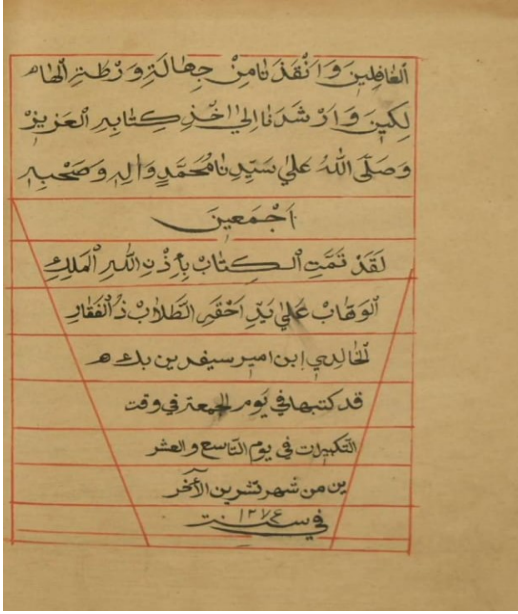 الغافلين وَاَنْقَذَنَا مِنْ جِهَالَةِ وَرْطَةِ الْهَا
لِكِينَ وَاَرْشَدَنَا اِلىٰ اَخْذِ كِتَابِهِ الْعَزِيزْ
وَصَلَّى اللّٰهُ عَلىٰ سَيِّدِنَا مُحَمَّدٍ وَاٰلِهِ وَصَحْبِهِ
اَجْمَعينَ
لَقَدْ تَمَّتِ الْكِتَابْ بِاِذْنِ اللّٰهِ الْمَلِكِ
الْوَهَّابْ عَلىٰ يَدِ اَحْقَرِ الطُّلَابْ ذُالْفَقَارِ
الْخَالِدِي اِبن امير سيفدين بك
قد كتبها في يَوم الجمعة في وقت
التّكبيرات في يوم التّاسع والعشر
ين من شهر تشرين الآخر
في سنة ١٢٧٤